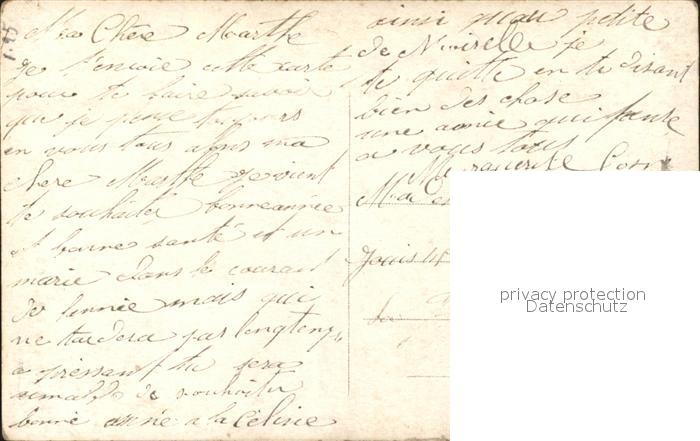 Ma Chère Marthe
je t'envoie cette carte
pour te faire savoir
que je pense toujours
en vous tous alors ma
chere Marthe je vient
te souhaiter bonne année
et bonne santé et un
marie dans le courant
de lannie mais qui
ne tardera pas longtemps
a pressant tu sera
aimable de souhaiter
bonne année a la Céline
ainsi quau petite
de je
te quitte en te disant
bien des chose
une amie qui panse
a vous tous
Marguerite
privacy protection
Datenschutz
1.95